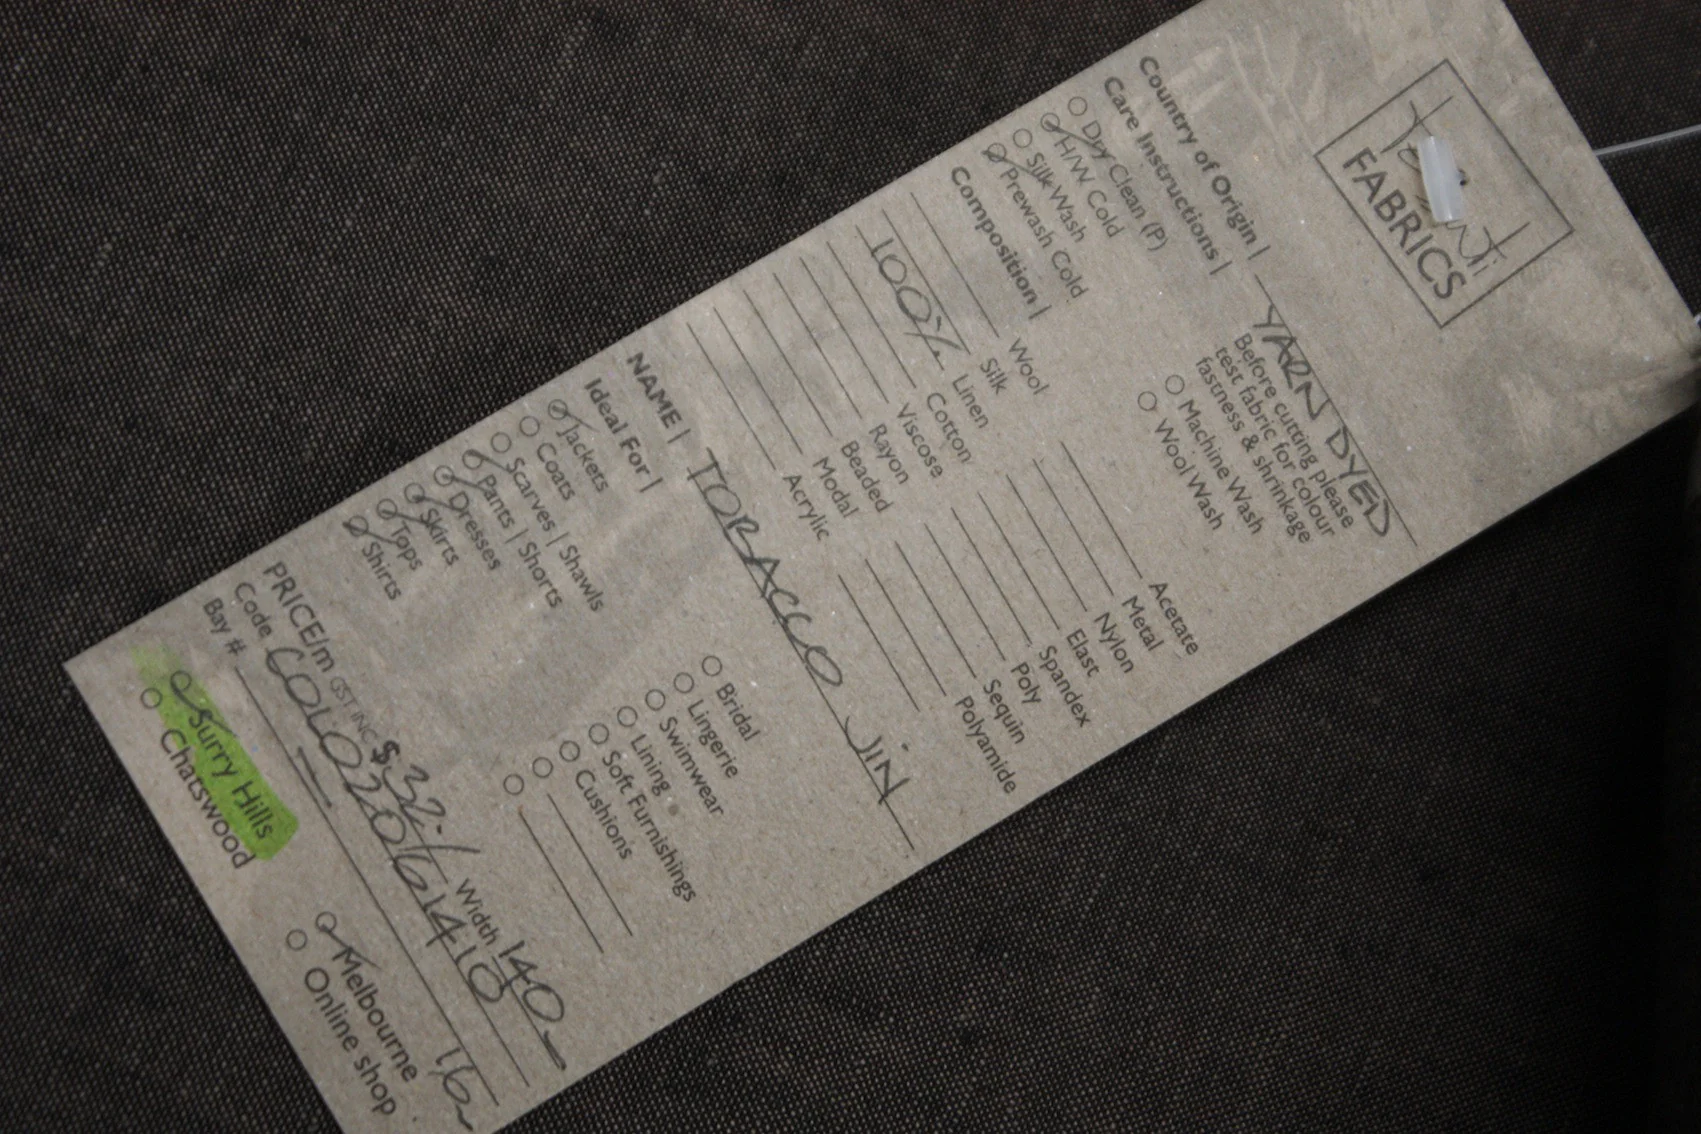 Tessuti
FABRICS
Country of Origin | YARN DYED
Care Instructions |
Before cutting please
test fabric for colour
fastness & shrinkage
Dry Clean (P) Machine Wash
H/W Cold Wool Wash
Silk Wash
Prewash Cold
Composition |
Wool Acetate
Silk Metal
100% Linen Nylon
Cotton Elast
Viscose Spandex
Rayon Poly
Beaded Sequin
Modal Polyamide
Acrylic
NAME | TOBACCO JIN
Ideal For |
Jackets Bridal
Coats Lingerie
Scarves | Shawls Swimwear
Pants | Shorts Lining
Dresses Soft Furnishings
Skirts Cushions
Tops
Shirts
PRICE/m GST INC $ 32.- Width 140
Code
Bay #
Surry Hills Melbourne
Chatswood Online shop